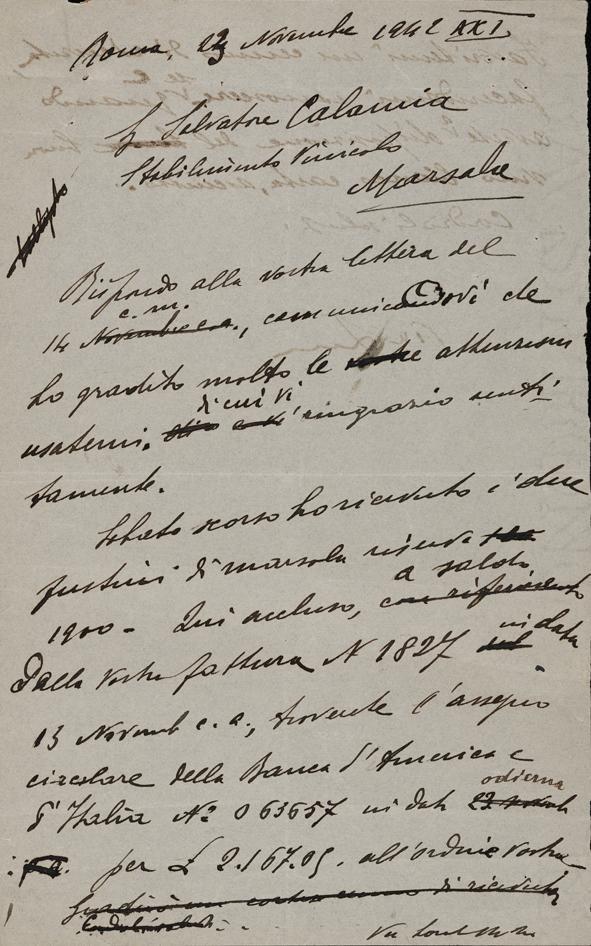 Roma, 23 Novembre 1942 XXI.
Salvatore Calamia
Stabilimento Vinicolo
Marsala
Rispondo alla vostra lettera del
c.m.
14 Novembre c.a., comunicandovi che
ho gradito molto le vostre attenzioni
di cui vi
usatemi. ringrazio senti
tamente.
Sabato scorso ho ricevuto i due
fustini di marsala riserva
a saldo
1900 - Qui accluso, con riferimento
in data
Dalla vostra fattura N 1827 sul
13 Novemb c.a., troverete l'assegno
circolare della Banca d'America e
odierna
d'Italia No 063657 in data 23
per £ 2.167.05. all'ordine vostro
Gradirò un vostro cenno di ricevuta